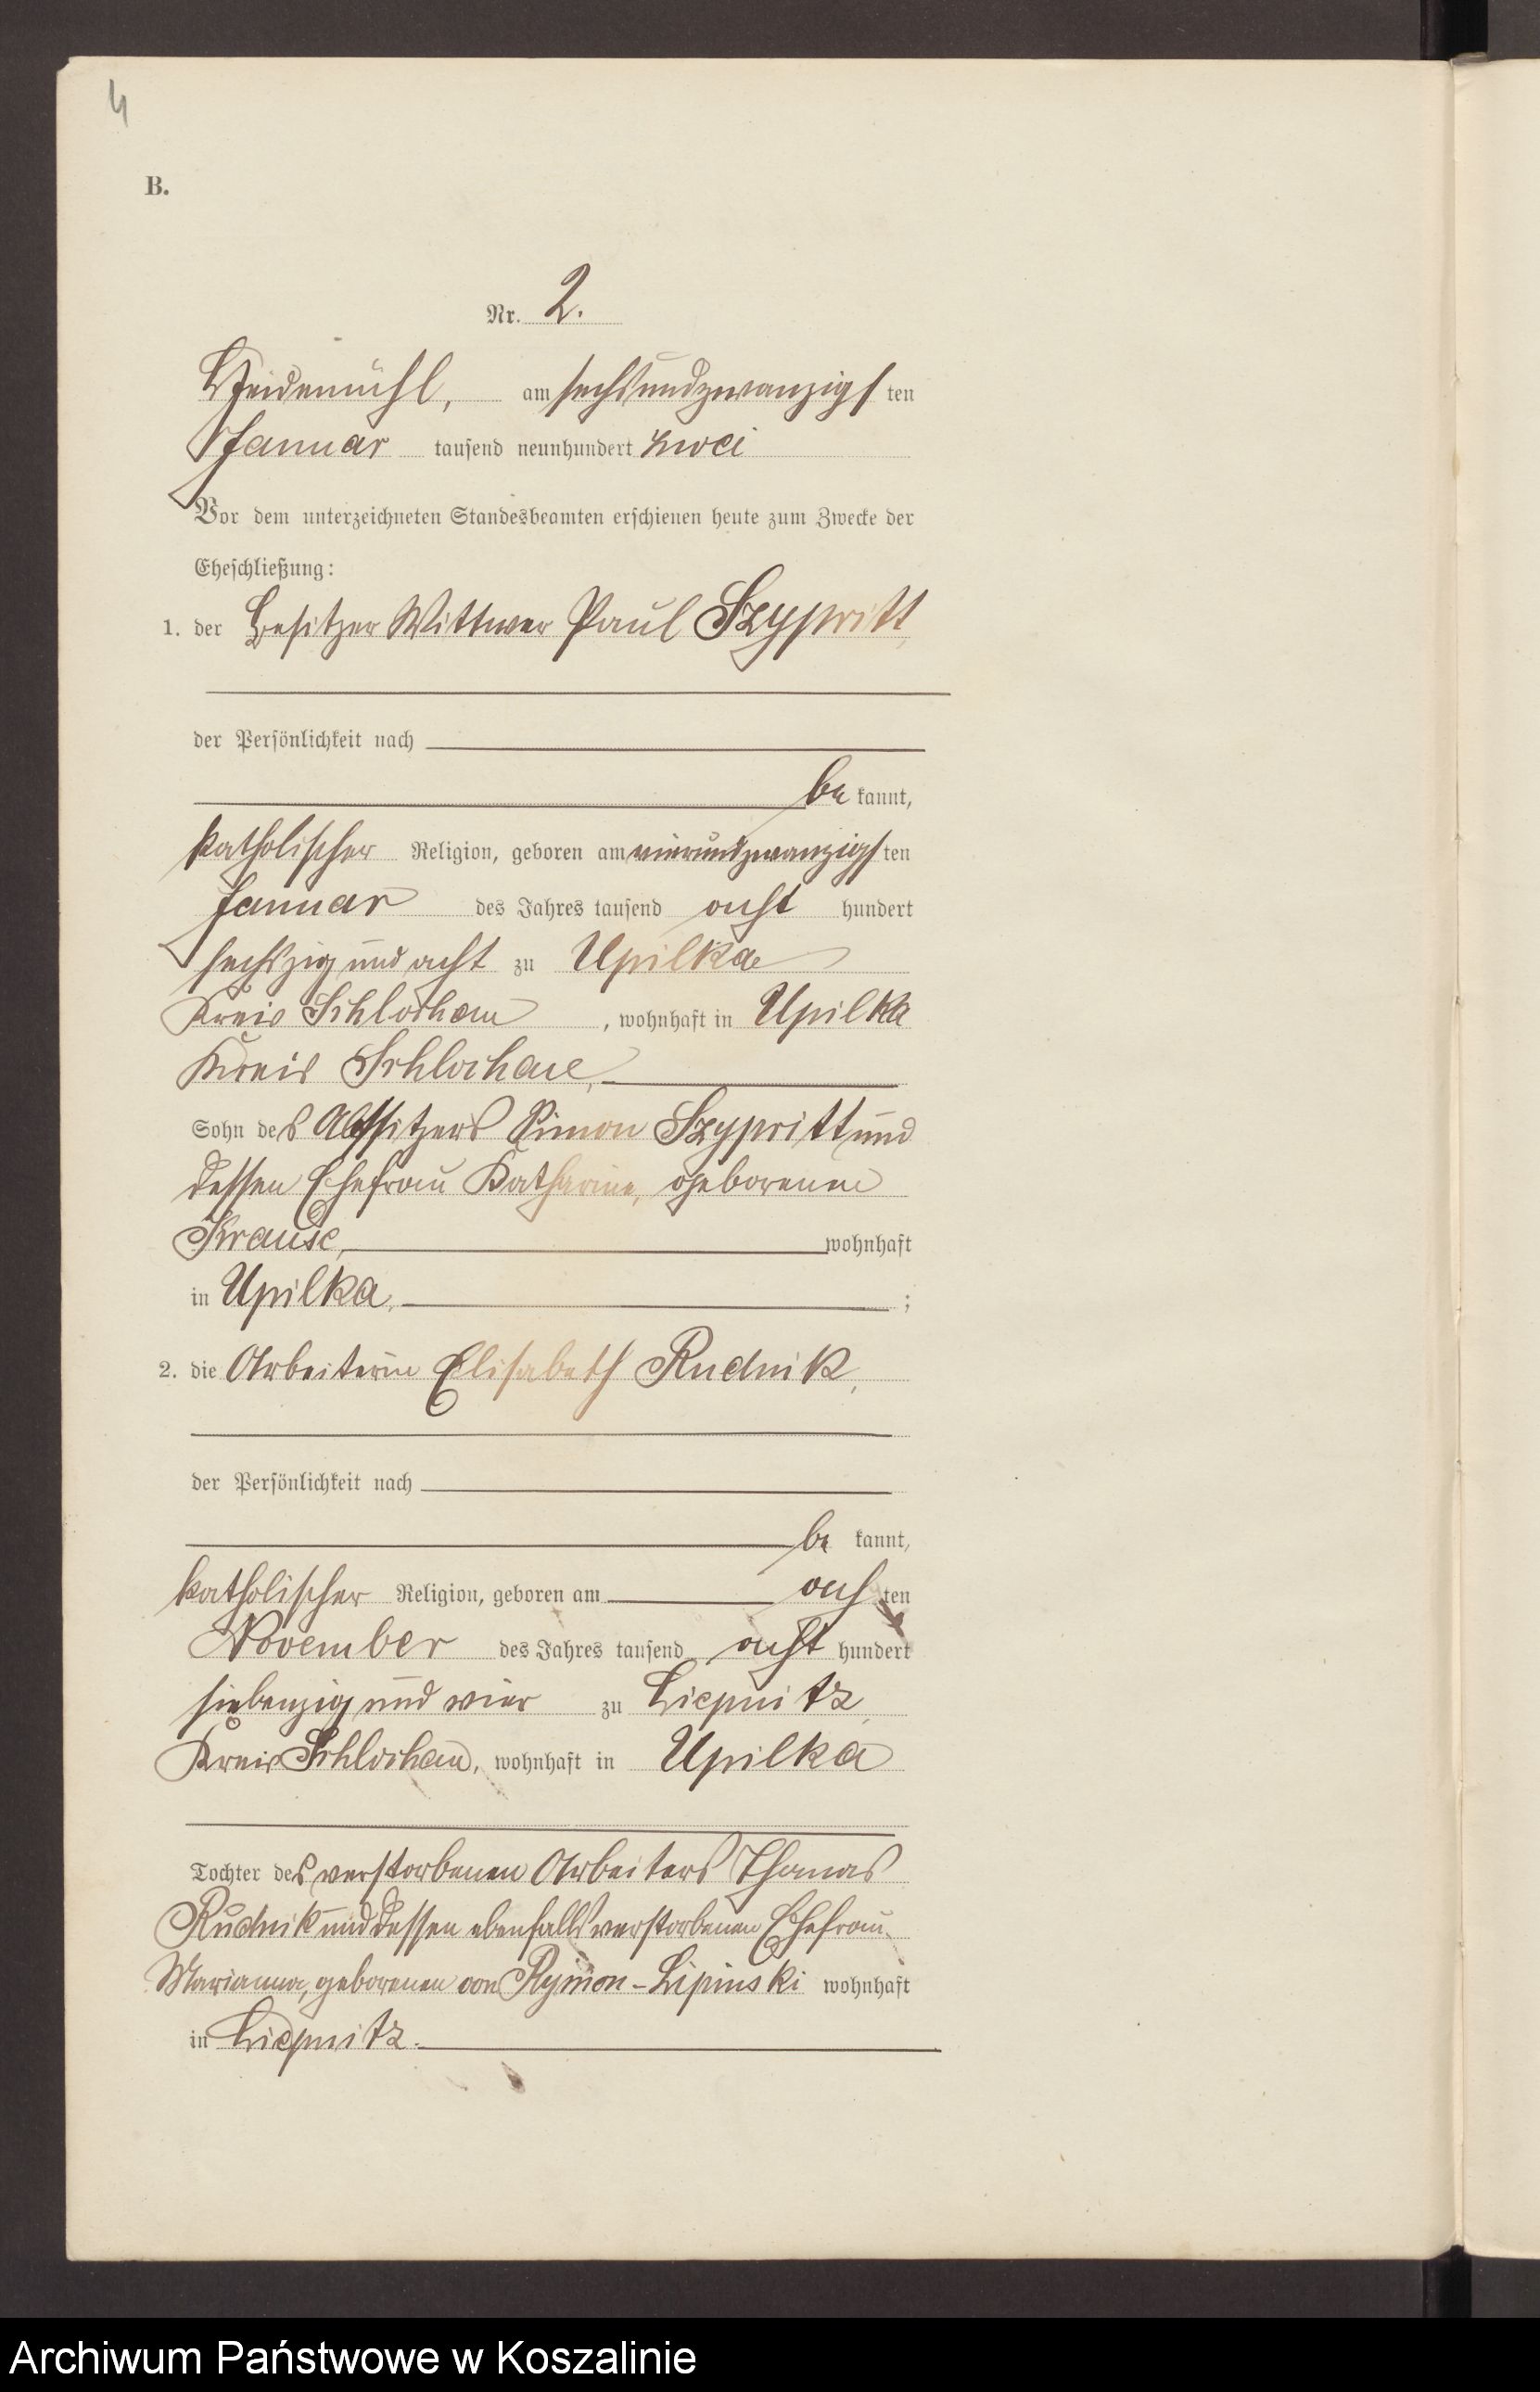 4
B.
Nr. 2.
Heidemühl, am sechsundzwanzigsten
Januar tausend neunhundert zwei
Vor dem unterzeichneten Standesbeamten erschienen heute zum Zwecke der
Eheschließung:
1. der Besitzer Wittwer Paul Szypritt,
der Persönlichkeit nach
be kannt,
katholischer Religion, geboren am vierundzwanzigsten
Januar des Jahres tausend acht hundert
sechszig und acht zu Upilka
Kreis Schlochau, wohnhaft in Upilka
Kreis Schlochau,
Sohn des Altsitzers Simon Szypritt und
dessen Ehefrau Katharina, geborenen
Krause, wohnhaft
in Upilka, ;
2. die Arbeiterin Elisabeth Rudnik,
der Persönlichkeit nach
be kannt,
katholischer Religion, geboren am achten
November des Jahres tausend acht hundert
siebenzig und vier zu Liepnitz,
Kreis Schlochau, wohnhaft in Upilka
Tochter des verstorbenen Arbeiters Thomas
Rudnik und dessen ebenfalls verstorbenen Ehefrau
Marianna, geborenen von Rymon-Lipinski wohnhaft
in Liepnitz.
Archiwum Państwowe w Koszalinie